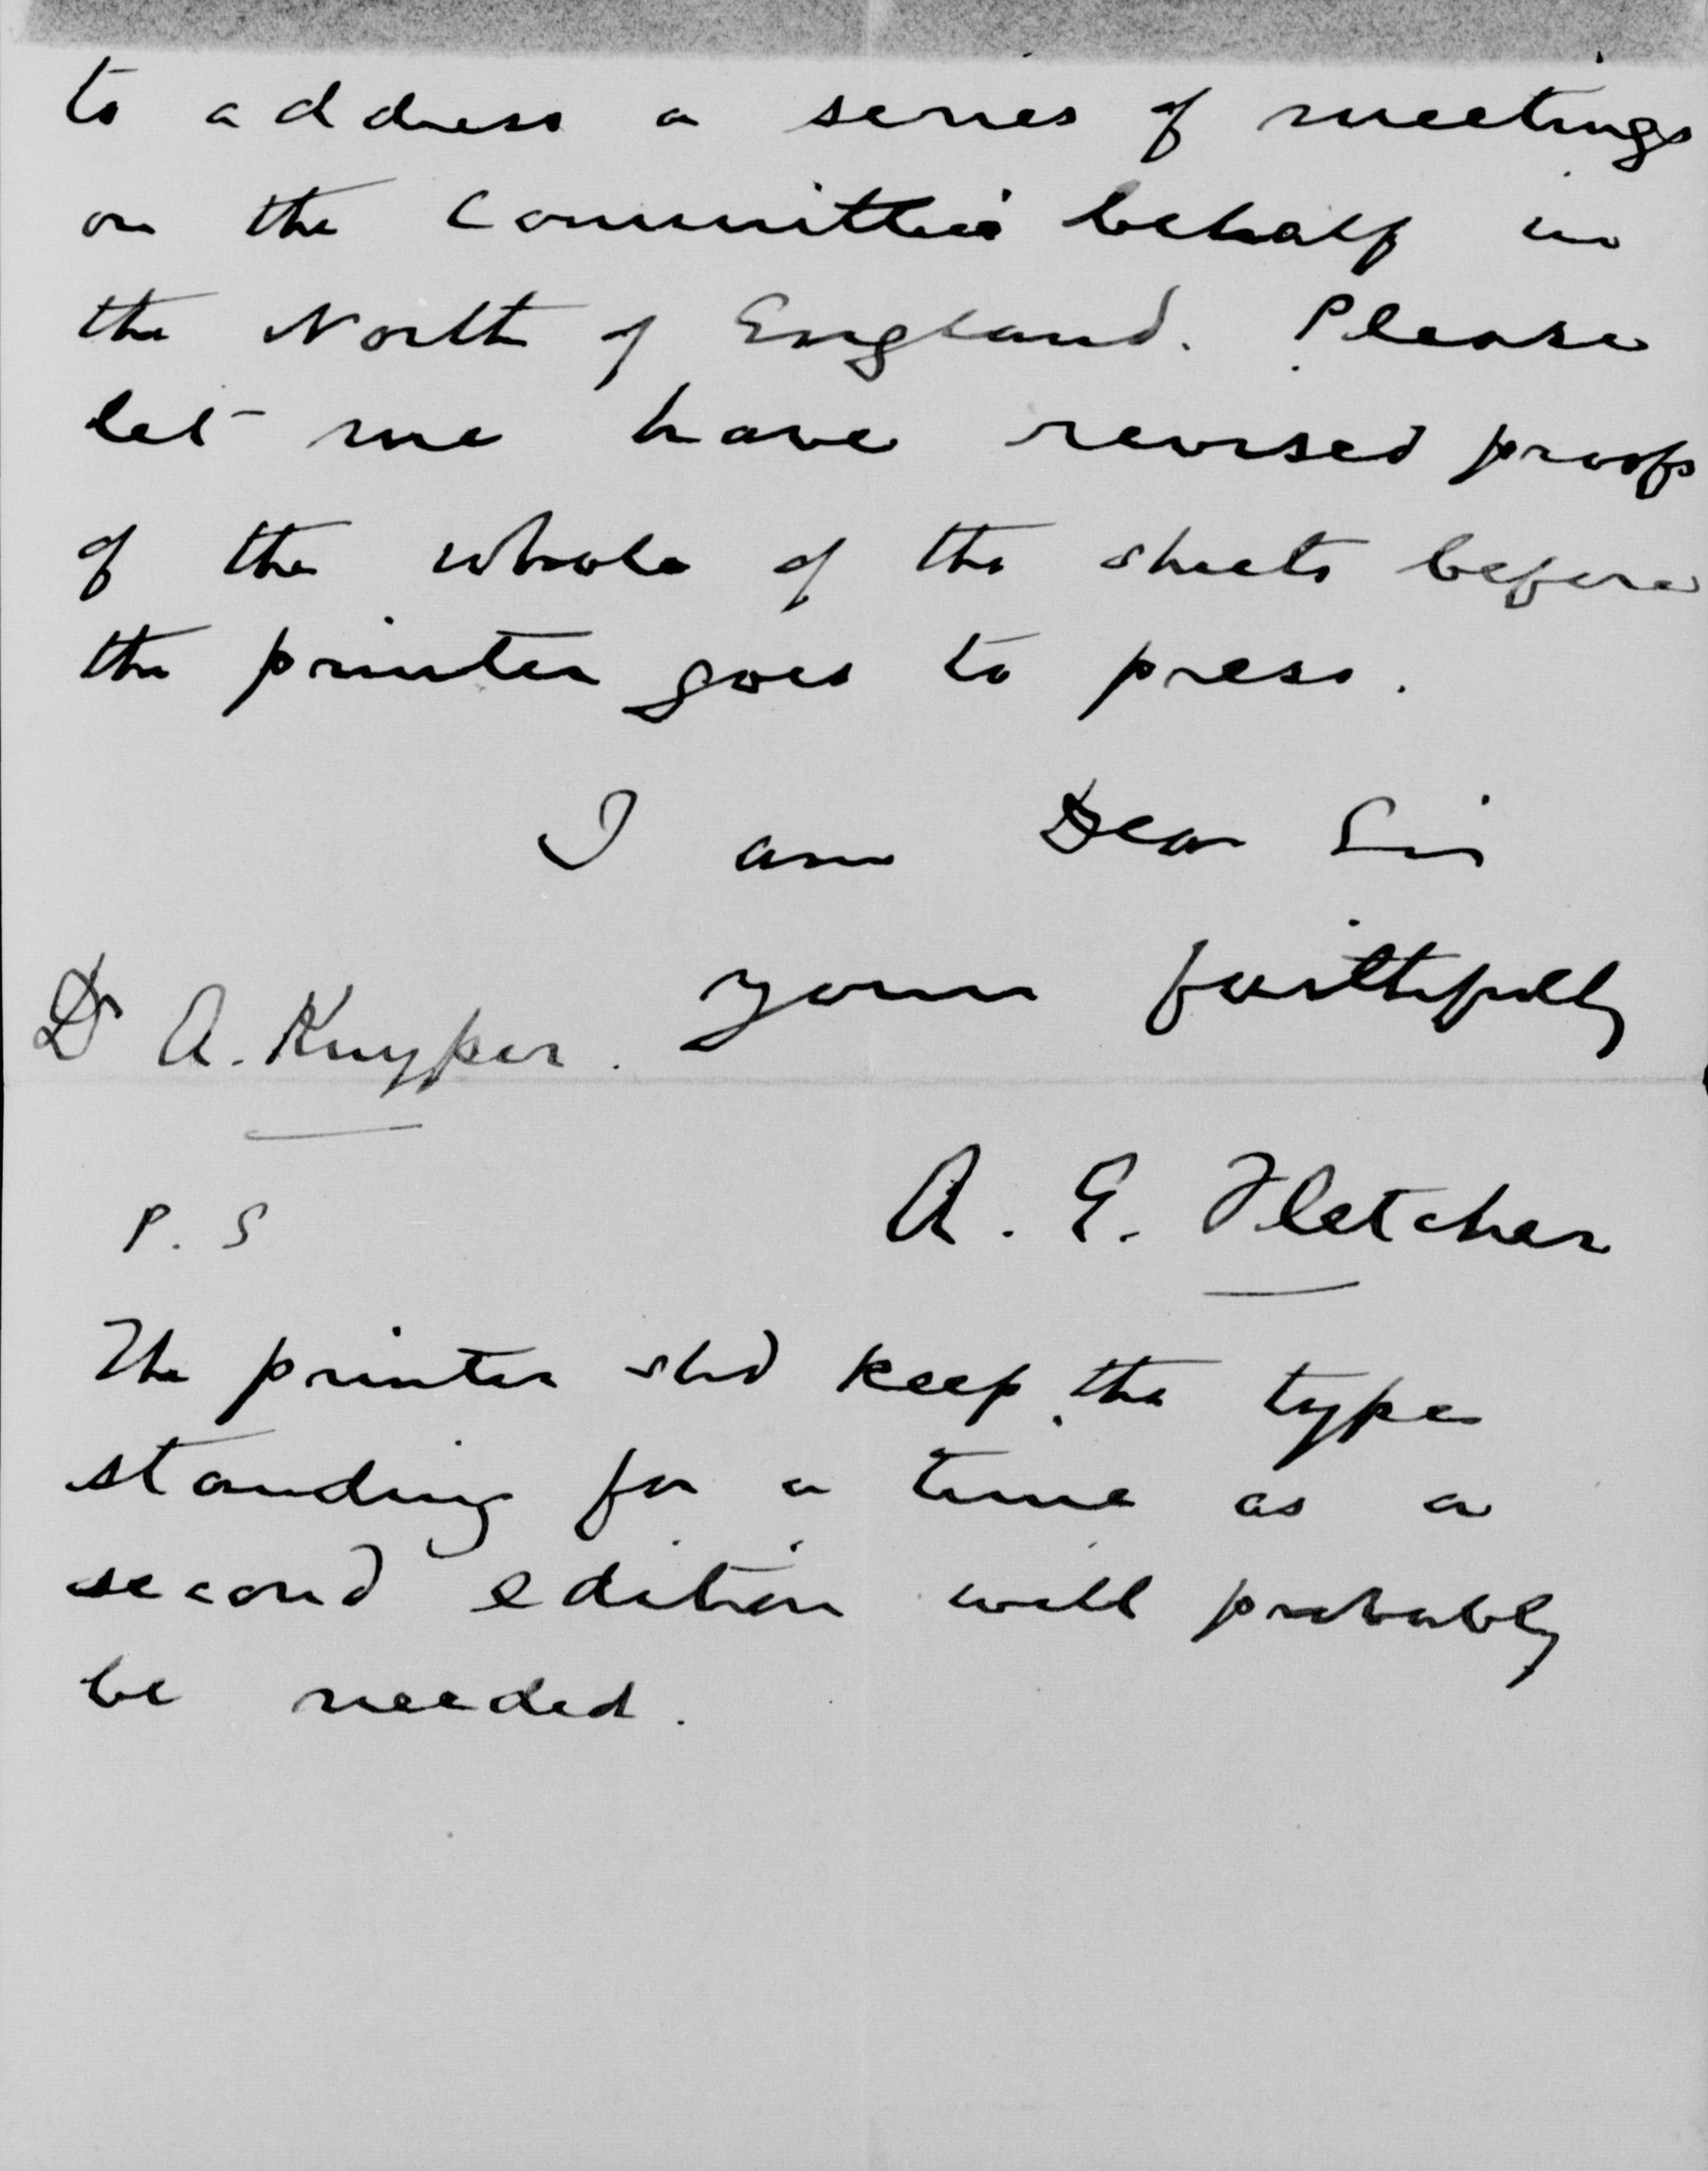 to address a series of meetings
on the Committee's behalf in
the North of England. Please
let me have revised proofs
of the whole of the sheets before
the printer goes to press.
I am Dear Sir
yours faithfully
Dr A. Kuyper.
A. E. Fletcher
P. S
The printer shd keep the type
standing for a time as a
second edition will probably
be needed.